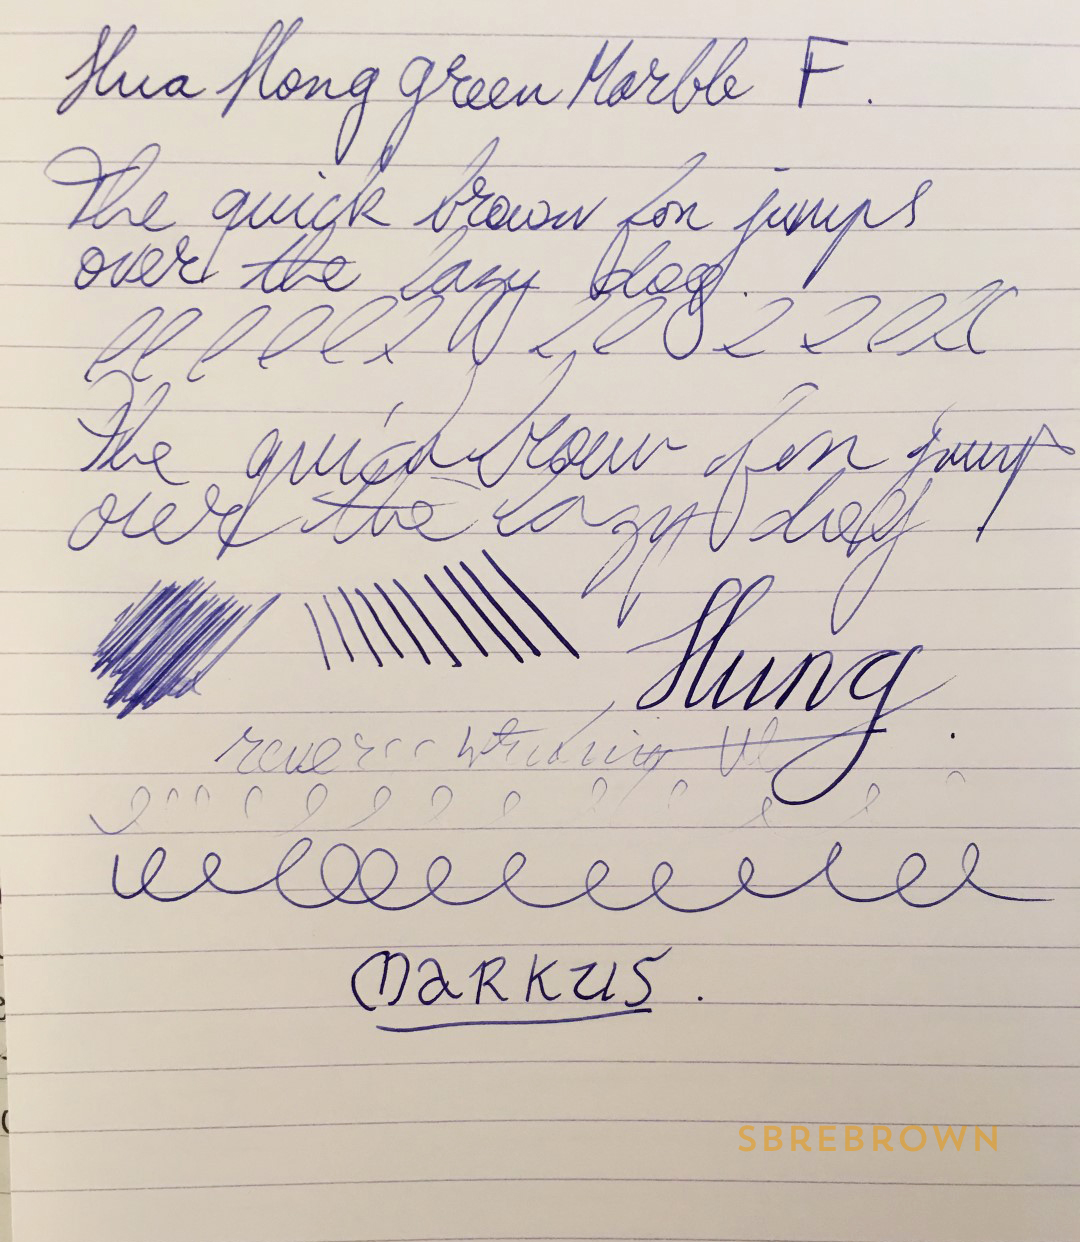 Hua Hong Green Marble F.
The quick brown fox jumps
over the lazy dog.
The quick brown fox jump
over the lazy dog!
Hung
reverse writing
MARKUS.
SBREBROWN